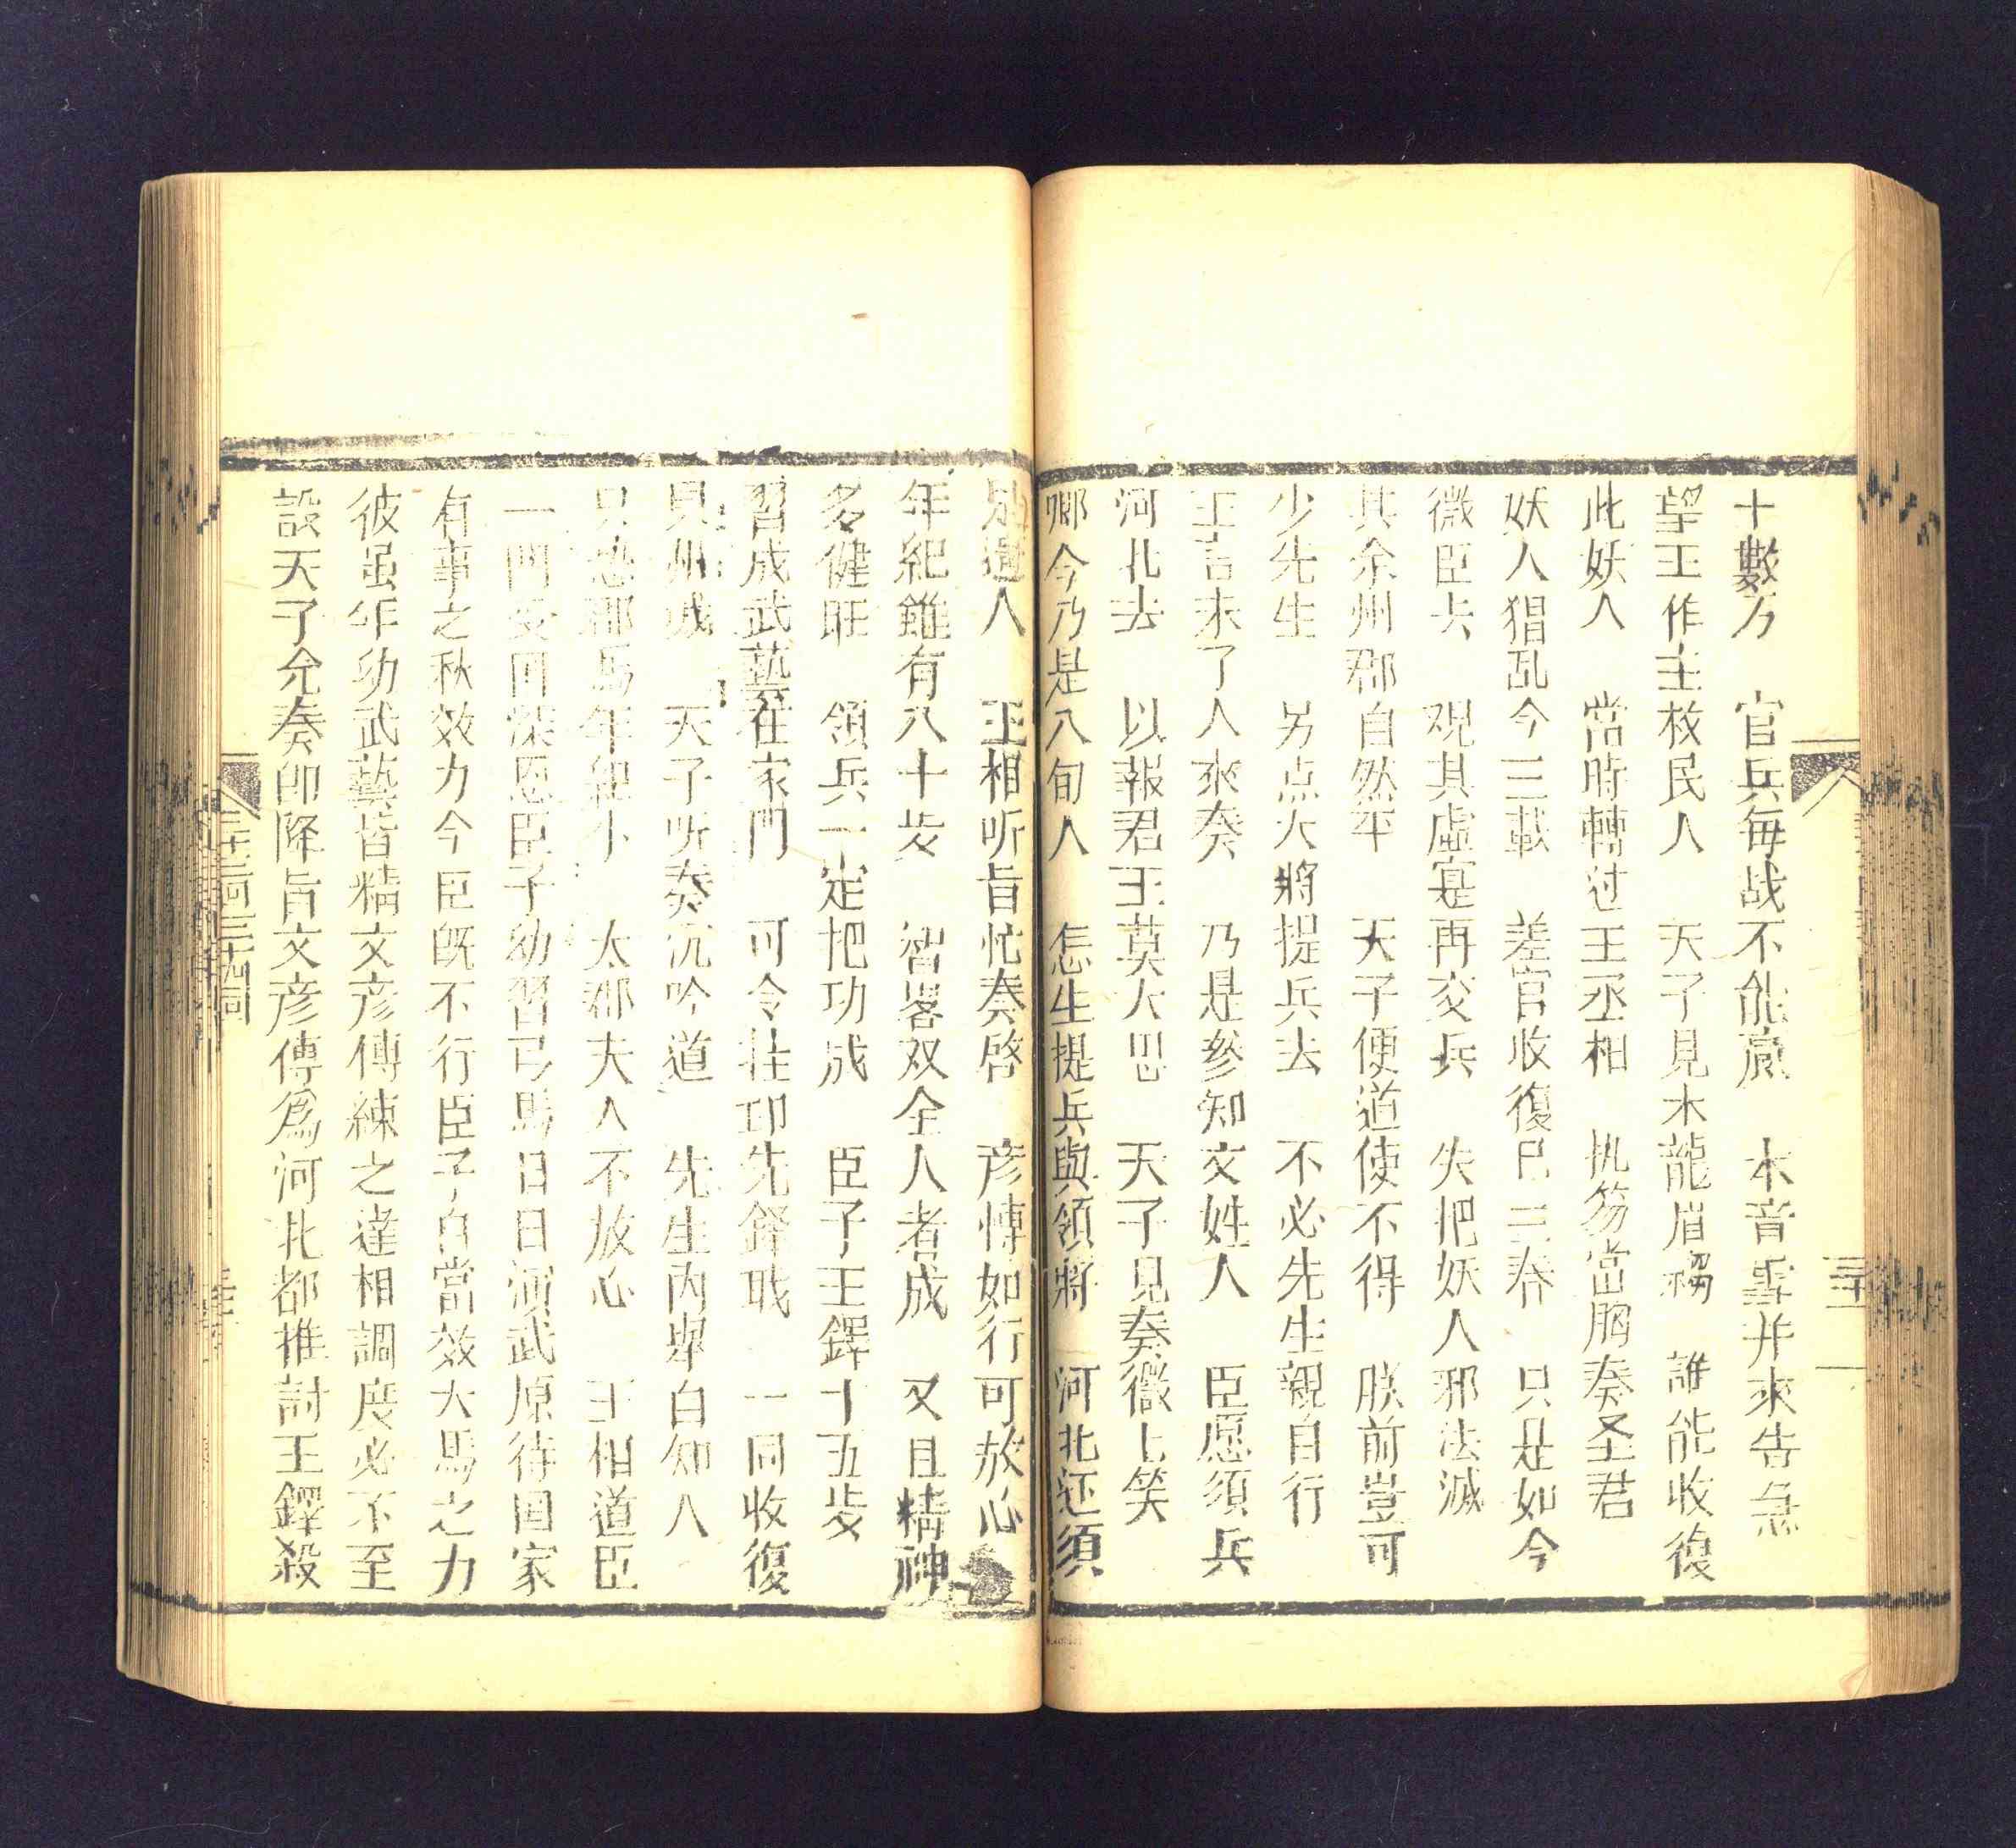 十數万　官兵每战不能贏　本音尋并來告急
望王作主救民人　天子見本龍眉縐　誰能收復
此妖人　當時轉过王丞相　执笏當胸奏圣君
妖人猖乱今三載　差官收復已三春　只是如今
微臣去　观其虛寔再交兵　失把妖人邪法滅
其余州郡自然平　天子便道使不得　朕前豈可
少先生　另点大將提兵去　不必先生親自行
王言未了人來奏　乃是參知文姓人　臣愿須兵
河北去　以報君王莫大恩　天子見奏微上笑
卿今乃是八旬人　怎生提兵與領將　河北还須
別遣人　王相听旨忙奏啓　彦博如行可放心
年紀雖有八十歲　智畧双全人者成　又且精神
多健旺　領兵一定把功成　臣子王鐸十五歲
習成武藝在家門　可令挂印先鋒职　一同收復
貝州城　天子听奏沉吟道　先生內舉白知人
只恐郡馬年紀小　太郡夫人不放心　王相道臣
一門受囯深恩臣子幼習弓馬日日演武原待囯家
有事之秋效力今臣既不行臣子自當效犬馬之力
彼虽年幼武藝皆精文彦博練之達相調度必不至
設天子允奏卽降旨文彦博爲河北都推討王鐸殺